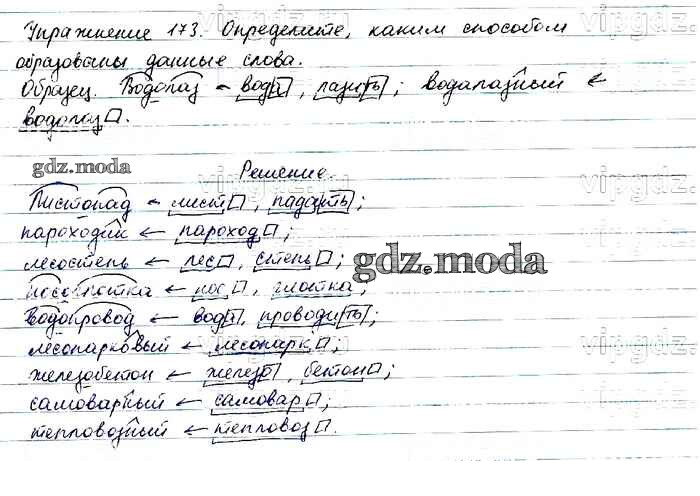 Упражнение 173. Определите, каким способом
образованы данные слова.
Образец. Водолаз ← вода, лазить; водолазный ←
водолаз.
gdz.moda
Решение.
Листопад ← лист, падать;
пароходик ← пароход;
лесостепь ← лес, степь;
gdz.moda
носоглотка ← нос, глотка;
водопровод ← вода, проводить;
лесопарковый ← лесопарк;
железобетон ← железо, бетон;
самоварный ← самовар;
тепловозный ← тепловоз.